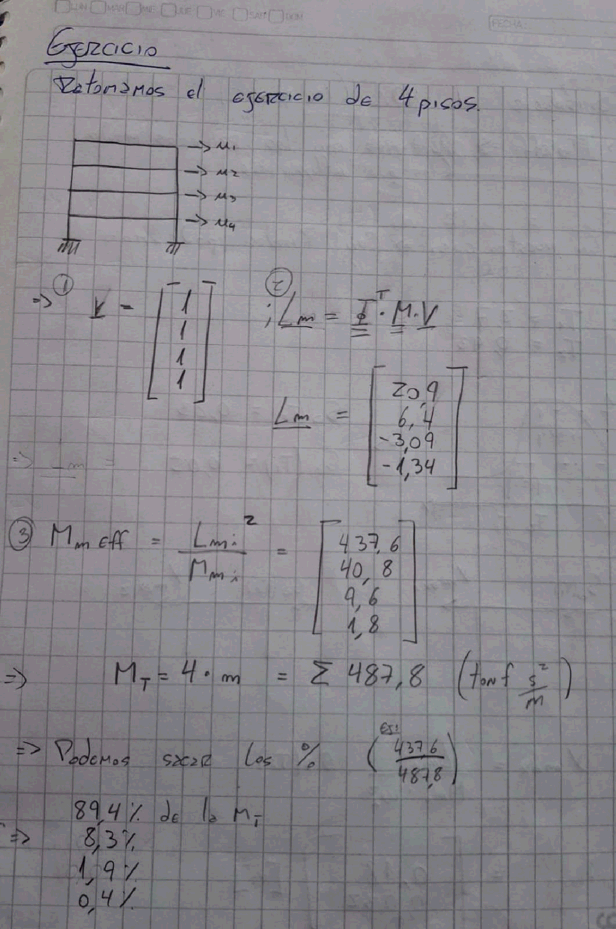 LUN MAR MIE JUE VIE SAB DOM
FECHA:
Ejercicio
Retomamos el ejercicio de 4 pisos.
→ u1
→ u2
→ u3
→ u4
⇒ ① r = [1 1 1 1]
② ; Lm = Φ^T · M · r
Lm = [20,9 6,4 -3,09 -1,34]
③ Mm eff = Lmi² / Mmi = [437,6 40,8 9,6 1,8]
⇒ MT = 4 · m = Σ 487,8 (tonf s²/m)
⇒ Podemos sacar los % (Ej: 437,6/487,8)
⇒ 89,4% de la MT
8,3%
1,9%
0,4%